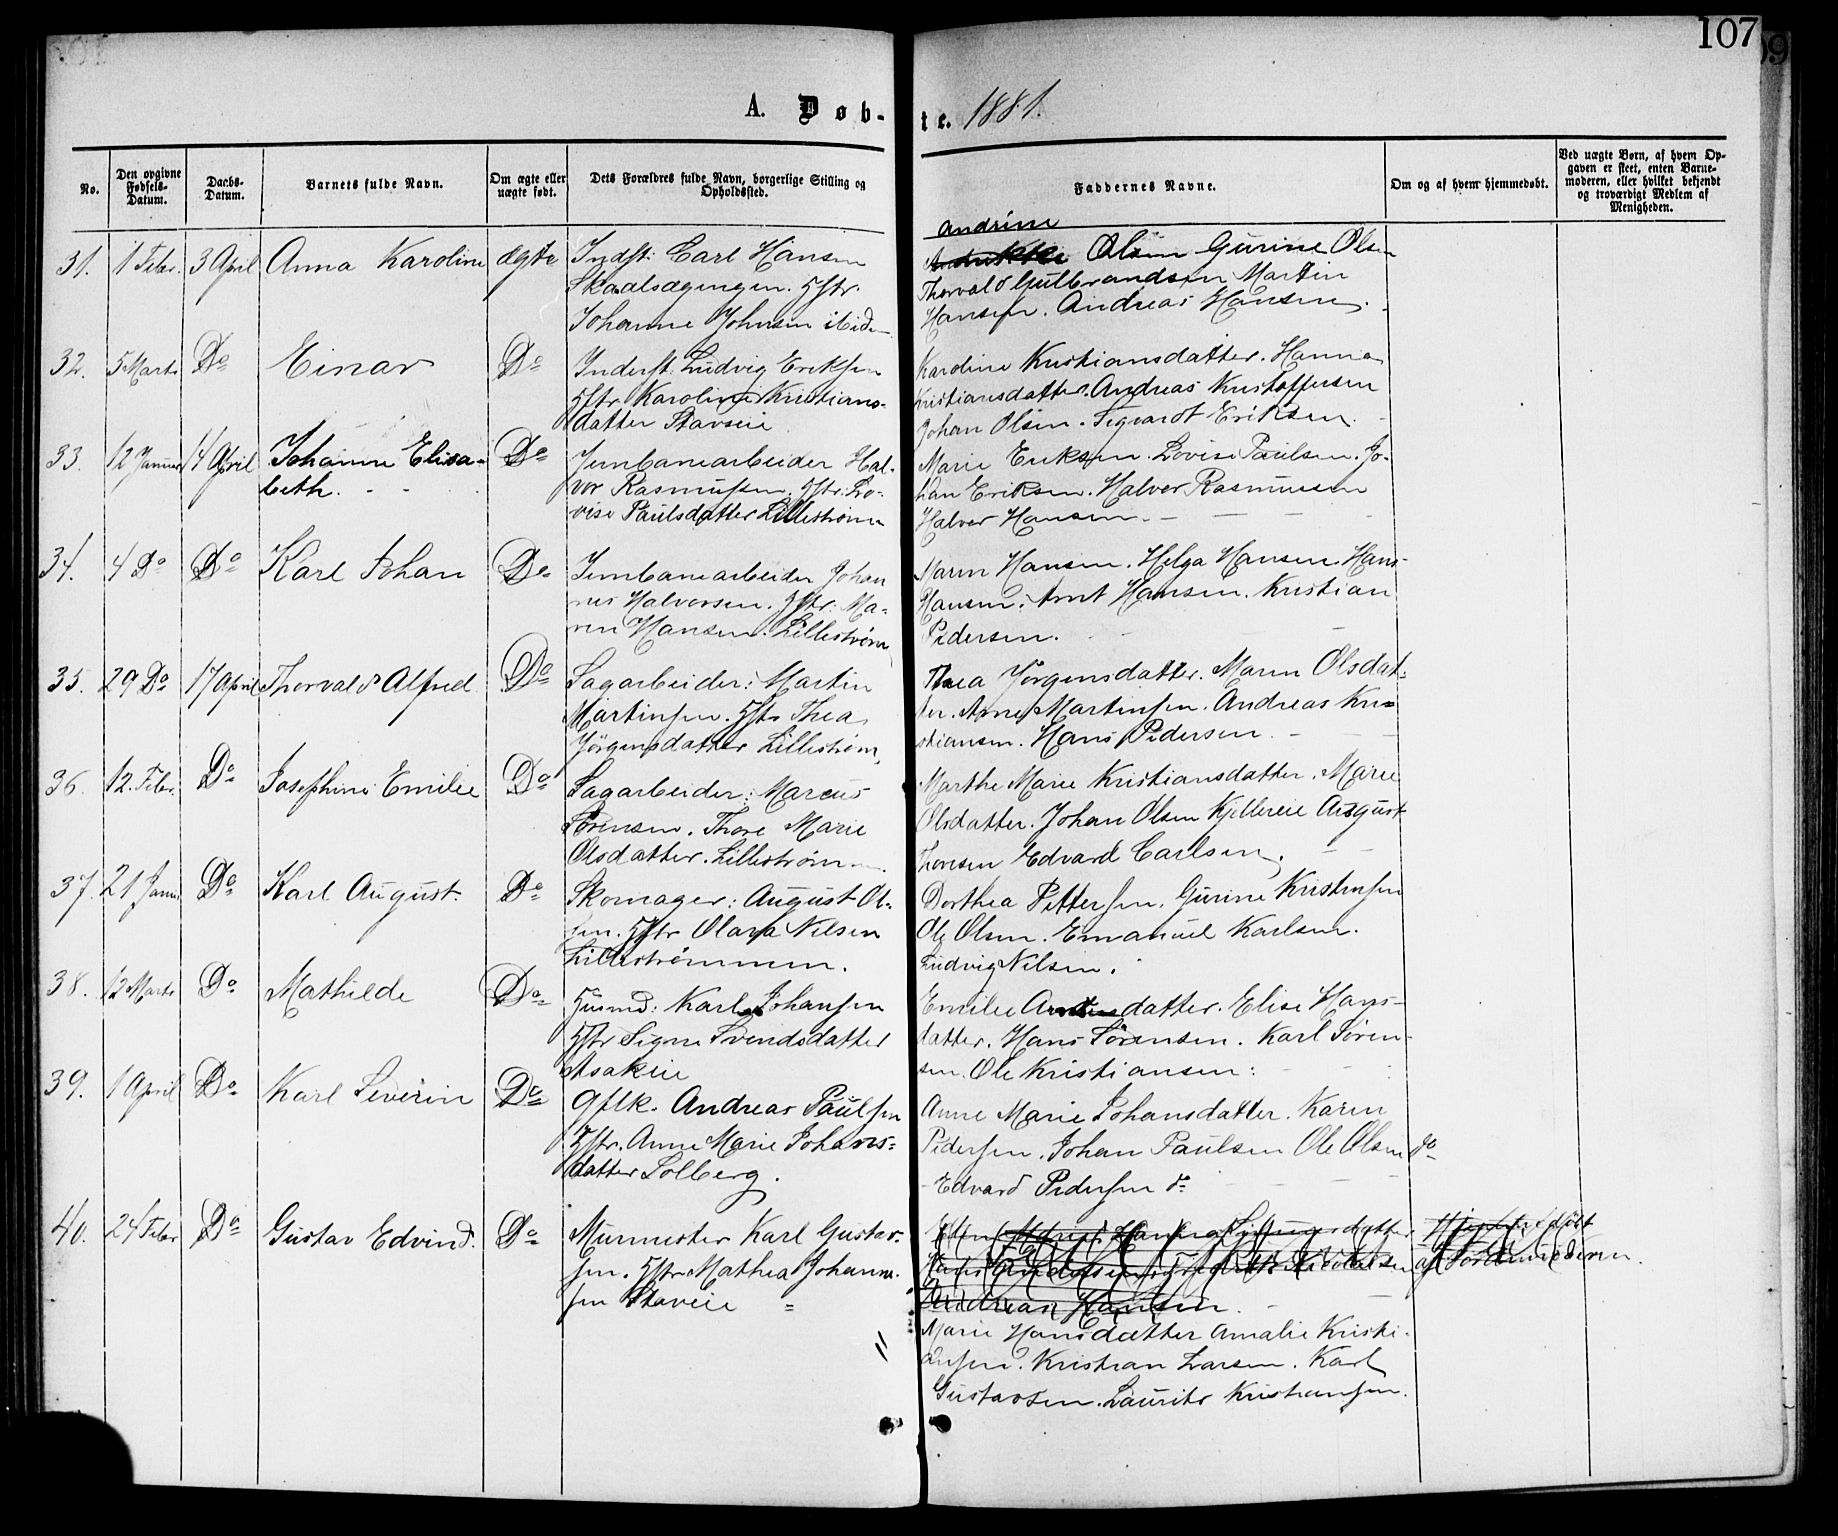 107
A. Døb-
te. 1881.
No.
Den opgivne Fødsels-Datum.
Daabs-Datum.
Barnets fulde Navn.
Om ægte eller uægte født.
Dets Forældres fulde Navn, borgerlige Stilling og Opholdssted.
Faddernes Navne.
Om og af hvem hjemmedøbt.
Ved uægte Børn, af hvem Op-
gaven er skeet, enten Barne-
moderen, eller hvilket bekjendt
og troværdigt Medlem af
Menigheden.
31. 1 Febr. 3 April Anna Karoline ægte Indst: Carl Hansen
Skadalsægningen. Hstr.
Johanne Johnsen ibid.
Andrine
Olsen Gurine Olsen
Thorvald Gulbrandsen Martin
Hansen. Andreas Hansen.
32. 5 Marts Do Einar Do Inderst: Ludvig Eriksen
Hstr Karoline Kristians-
datter Stavseie
Karoline Kristiansdatter. Hanna
Kristiansdatter. Andreas Kristoffersen
Johan Olsen. Sigvardt Eriksen.
33. 12 Januar 14 April Johanne Elisa-
beth. Do Jernbanearbeider Hal-
vor Rasmussen. Hstr: Lo-
vise Paulsdatter Lillestrøm
Marie Eriksen. Lovise Paulsen. Jo-
han Eriksen. Halver Rasmussen
Halver Hansen.
34. 4 Do Do Karl Johan Do Jernbanearbeider Johan
nes Halvorsen. Hstr: Ma-
ren Hansen. Lillestrøm
Maren Hansen. Helga Hansen. Hans
Hansen. Arnt Hansen. Kristian
Pedersen.
35. 29 Do 17 April Thorvald Alfred Do Sagarbeider: Martin
Martinsen. Hstr Thea
Jörgensdatter Lillestrøm
Thea Jörgensdatter. Maren Olsdat-
ter. Arne Martinsen. Andreas Kri-
stiansen. Hans Pedersen.
36. 12. Febr. Do Josephine Emilie Do Sagarbeider: Marcus
Sørensen. Thore Marie
Olsdatter. Lillestrøm
Marthe Marie Kristiansdatter. Marie
Olsdatter. Johan Olsen Kjellereie August
Thoresen Edvard Carlsen.
37. 21 Janu Do Karl August. Do Skomager: August Ol-
sen. Hstr Olava Nilsen
Lillestrømmen.
Dorthea Pettersen. Gurine Kristensen
Ole Olsen. Emanuel Karlsen.
Ludvig Nilsen.
38. 12 Marts Do Mathilde Do Husmd: Karl Johansen
Hstr Signe Svendsdatter
Asakeie
Emilie datter. Elise Hans-
datter. Hans Sörensen. Karl Sören-
sen. Ole Kristiansen:
39. 1 April Do Karl Severin Do Gflk. Andreas Paulsen
Hstr. Anne Marie Johans-
datter Solberg.
Anne Marie Johansdatter. Karen
Pedersen. Johan Paulsen Ole Olsen do
Edvard Pedersen do
40. 24 Febr Do Gustav Edvind. Do Murmester Karl Gustav-
sen. Hstr Mathea Johanne-
sen Staveie
Hjemmedøbt
af Jordemoderen.
Andreas Hansen.
Marie Hansdatter Amalie Kristi-
ansen. Kristian Larsen. Karl
Gustavsen. Laurits Kristiansen.